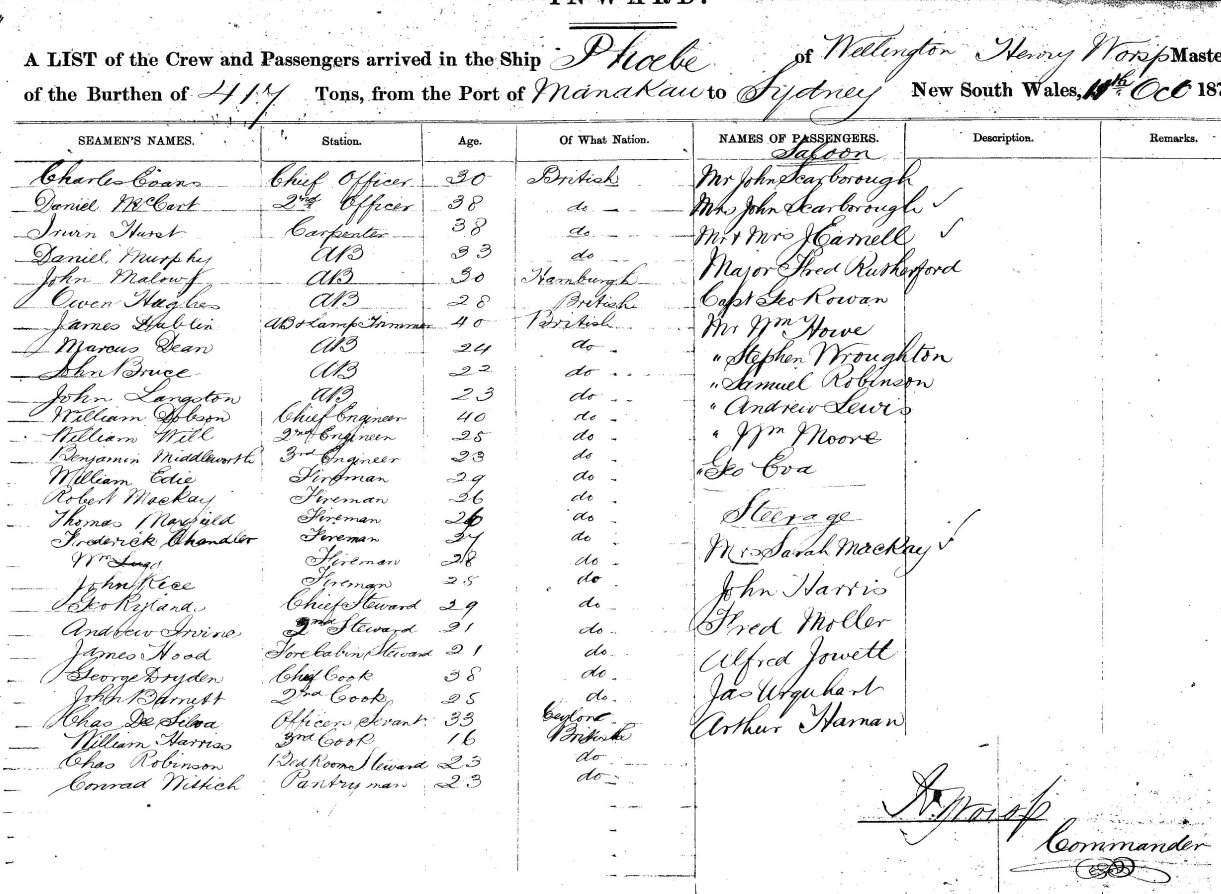 INWARD.
A LIST of the Crew and Passengers arrived in the Ship Phoebe of Wellington Henry Worsp Maste
of the Burthen of 417 Tons, from the Port of Manakau to Sydney New South Wales, 11th Oct 187
SEAMEN'S NAMES. Station. Age. Of What Nation. NAMES OF PASSENGERS. Description. Remarks.
Saloon
Charles Evans Chief Officer 30 British Mr John Scarborough
Daniel McCart 2nd Officer 38 do Mrs John Scarborough ✓
Irwin Hurst Carpenter 38 do Mr & Mrs J Carnell ✓
Daniel Murphy AB 33 do
John AB 30 Hamburgh Major Fred Rutherford
Owen Hughes AB 28 British Capt Geo Rowan
James Dublin AB & Lamp Trimmer 40 British Mr Wm Howe
Marcus Dean AB 24 do " Stephen Wroughton
John Bruce AB 22 do " Samuel Robinson
John Langston AB 23 do " Andrew Lewis
William Dobson Chief Engineer 40 do
William Will 2nd Engineer 25 do " Wm Moore
Benjamin Middleworth 3rd Engineer 23 do " Geo Eva
William Edie Fireman 29 do
Robert Mackay Fireman 26 do
Thomas Fireman 26 do Steerage
Frederick Chandler Fireman 27 do Mrs Sarah Mackay ✓
Wm Fireman 28 do
John Rice Fireman 25 do John Harris
Geo Ryland Chief Steward 29 do
Andrew Irvine 2nd Steward 21 do Fred Moller
James Hood Fore Cabin Steward 21 do Alfred Jowett
George Dryden Chief Cook 38 do
John Barnett 2nd Cook 25 do Jas Urquhart
Chas De Silva Officers Servant 33 Ceylon Arthur Haman
William Harriss 3rd Cook 16 British
Chas Robinson Bed Room Steward 23 do
Conrad Wittich Pantryman 23 do
H. Worsp
Commander